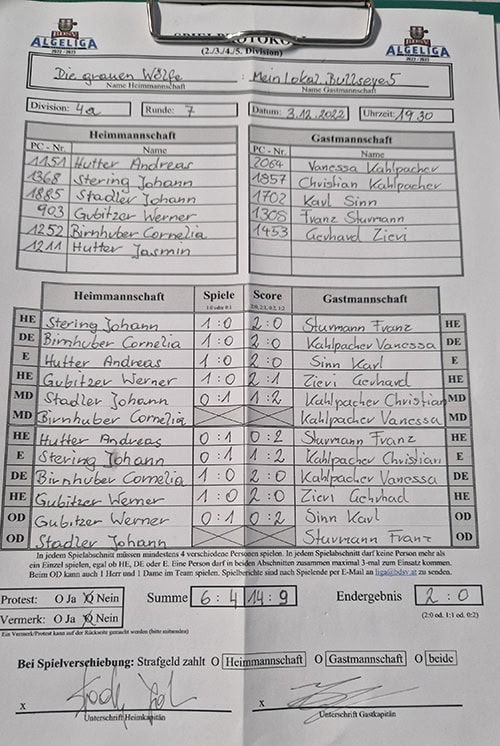 BDSV
ALGELIGA
2022 / 2023
SPIELPROTOKOLL
BDSV
ALGELIGA
2022 / 2023
(2./3./4./5. Division)
Die grauen Wölfe : Mein Lokal Bullseye 5
Name Heimmannschaft Name Gastmannschaft
Division: 4a Runde: 7 Datum: 3.12.2022 Uhrzeit: 19.30
Heimmannschaft Gastmannschaft
PC - Nr. Name PC - Nr. Name
1151 Hutter Andreas 2064 Vanessa Kahlpacher
1368 Stering Johann 1857 Christian Kahlpacher
1885 Stadler Johann 1702 Karl Sinn
903 Gubitzer Werner 1308 Franz Sturmann
1252 Birnhuber Cornelia 1453 Gerhard Zieri
1211 Hutter Jasmin
Heimmannschaft Spiele Score Gastmannschaft
1:0 oder 0:1 2:0, 2:1, 0:2, 1:2
HE Stering Johann 1:0 2:0 Sturmann Franz HE
DE Birnhuber Cornelia 1:0 2:0 Kahlpacher Vanessa DE
E Hutter Andreas 1:0 2:0 Sinn Karl E
HE Gubitzer Werner 1:0 2:1 Zieri Gerhard HE
MD Stadler Johann 0:1 1:2 Kahlpacher Christian MD
MD Birnhuber Cornelia Kahlpacher Vanessa MD
HE Hutter Andreas 0:1 0:2 Sturmann Franz HE
E Stering Johann 0:1 1:2 Kahlpacher Christian E
DE Birnhuber Cornelia 1:0 2:0 Kahlpacher Vanessa DE
HE Gubitzer Werner 1:0 2:0 Zieri Gerhad HE
OD Gubitzer Werner 0:1 0:2 Sinn Karl OD
OD Stadler Johann Sturmann Franz OD
In jedem Spielabschnitt müssen mindestens 4 verschiedene Personen spielen. In jedem Spielabschnitt darf keine Person mehr als
ein Einzel spielen, egal ob HE, DE oder E. Eine Person darf in beiden Abschnitten zusammen maximal 3-mal zum Einsatz kommen.
Beim OD kann auch 1 Herr und 1 Dame im Team spielen. Spielberichte sind nach Spielende per E-Mail an liga@bdsv.at zu senden.
Protest: O Ja O Nein Summe 6 : 4 14 : 9 Endergebnis 2 : 0
Vermerk: O Ja O Nein (2:0 od. 1:1 od. 0:2)
Ein Vermerk/Protest kann auf der Rückseite gemacht werden (bitte mitsenden)
Bei Spielverschiebung: Strafgeld zahlt O Heimmannschaft O Gastmannschaft O beide
x x
Unterschrift Heimkapitän Unterschrift Gastkapitän